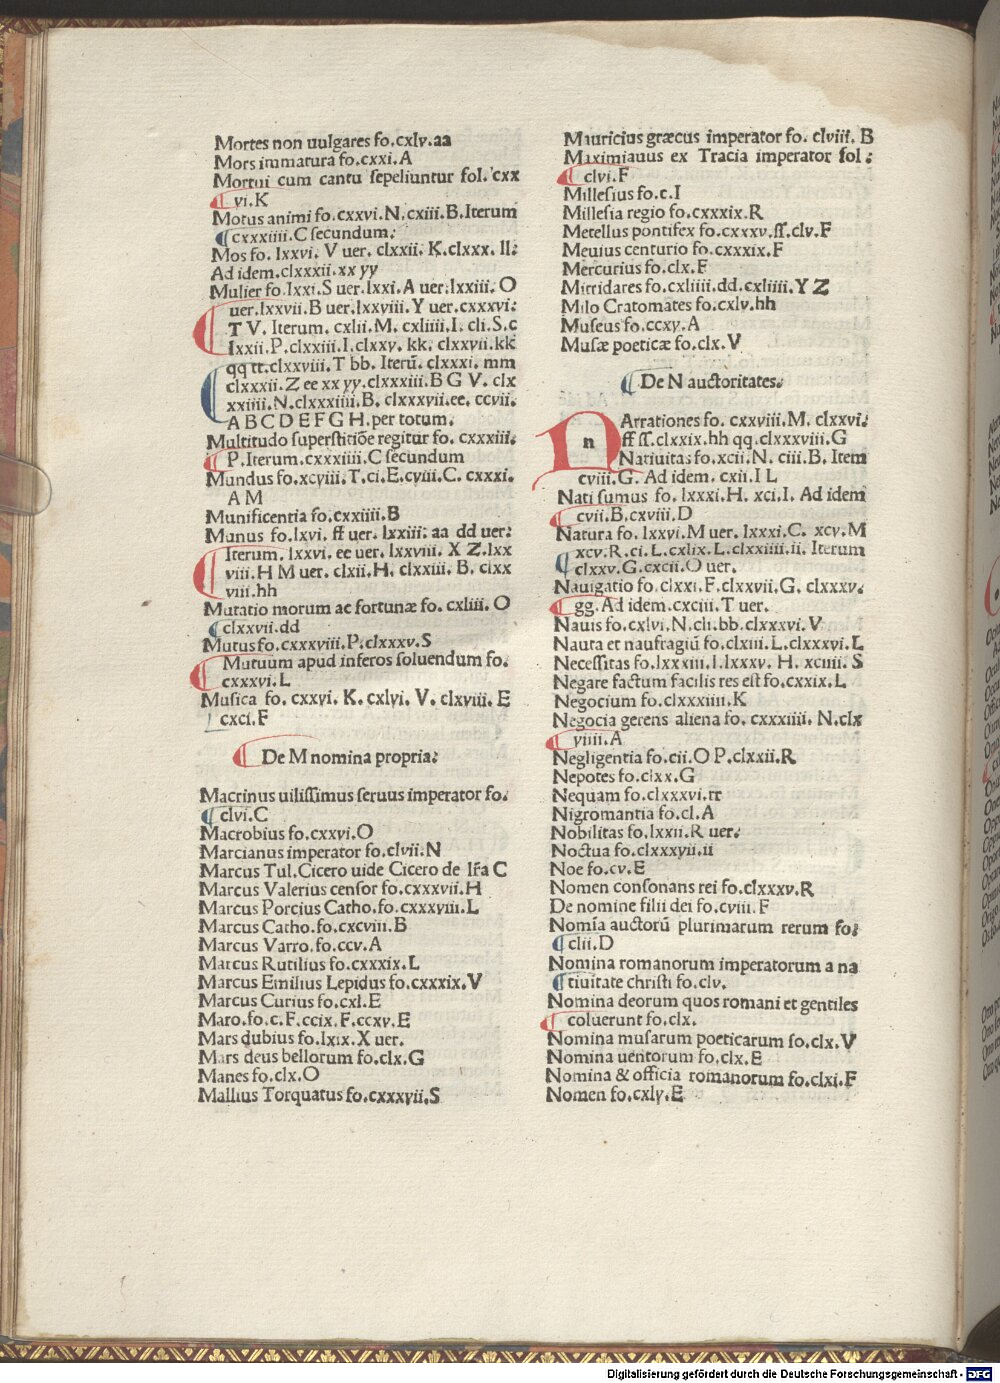 Mortes non uulgares fo.cxlv.aa
Mors immatura fo.cxxi.A
Mortui cum cantu sepeliuntur fol. cxx
vi.K
Motus animi fo.cxxvi.N.cxiii.B.Iterum
cxxxiiii.C secundum.
Mos fo. lxxvi. V uer. clxxii. K.clxxx. ll.
Ad idem.clxxxii.xx yy
Mulier fo.lxxi.S uer.lxxi.A uer.lxxiii.O
uer.lxxvii.B uer.lxxviii.Y uer.cxxxvi.
T V. Iterum. cxlii.M. cxliiii.I. cli.S.c
lxxii.P.clxxiii.I.clxxv. kk. clxxvii.kk
qq tt.clxxviii.T bb. Iterū. clxxxi. mm
clxxxii.Z ee xx yy.clxxxiii.B G V. clx
xxiiii.N.clxxxiiii.B. clxxxvii.ee. ccvii.
A B C D E F G H.per totum.
Multitudo superstitiōe regitur fo. cxxxiii.
P.Iterum.cxxxiiii.C secundum
Mundus fo.xcviii.T.ci.E.cviii.C. cxxxi.
A M
Munificentia fo.cxxiiii.B
Munus fo.lxvi. ff uer. lxxiii: aa dd uer:
Iterum. lxxvi. ee uer. lxxviii. X Z.lxx
viii.H M uer. clxii.H. clxxiii. B. cixx
viii.hh
Mutatio morum ac fortunæ fo. cxliii. O
clxxvii.dd
Mutus fo.cxxxviii.P.clxxxv.S
Mutuum apud inferos soluendum fo.
cxxxvi.L
Musica fo. cxxvi. K. cxlvi. V. clxviii. E
cxci.F
De M nomina propria:
Macrinus uilissimus seruus imperator fo.
clvi.C
Macrobius fo.cxxvi.O
Marcianus imperator fo.clvii.N
Marcus Tul.Cicero uide Cicero de lr̄a C
Marcus Valerius censor fo.cxxxvii.H
Marcus Porcius Catho.fo.cxxxviii.L
Marcus Catho.fo.cxcviii.B
Marcus Varro.fo.ccv.A
Marcus Rutilius fo.cxxxix.L
Marcus Emilius Lepidus fo.cxxxix.V
Marcus Curius fo.cxl.E
Maro.fo.c.F.ccix.F.ccxv.E
Mars dubius fo.lxix.X uer.
Mars deus bellorum fo.clx.G
Manes fo.clx.O
Mallius Torquatus fo.cxxxvii.S
Mauricius græcus imperator fo. clviii. B
Maximianus ex Tracia imperator fol:
clvi.F
Millesius fo.c.I
Millesia regio fo.cxxxix.R
Metellus pontifex fo.cxxxv.ſſ.clv.F
Meuius centurio fo.cxxxix.F
Mercurius fo.clx.F
Mitridates fo.cxliiii.dd.cxliiii.Y Z
Milo Cratomates fo.cxlv.hh
Museus fo.ccxv.A
Musæ poeticæ fo.clx.V
De N auctoritates.
n Arrationes fo. cxxviii.M. clxxvi.
ff ſſ.clxxix.hh qq.clxxxviii.G
Natiuitas fo.xcii.N. ciii.B. Item
cviii.G. Ad idem. cxii.I L
Nati sumus fo. lxxxi.H. xci.I. Ad idem
cvii.B.cxviii.D
Natura fo. lxxvi.M uer. lxxxi.C. xcv.M
xcv.R.ci.L.cxlix.L.clxxiiii.ii. Iterum
clxxv.G.cxcii.O uer.
Nauigatio fo.clxxi.F.clxxvii.G. clxxxv.
gg.Ad idem.cxciii.T uer.
Nauis fo.cxlvi.N.cli.bb.clxxxvi.V
Nauta et naufragiū fo.clxiii.L.clxxxvi.L
Necessitas fo.lxxxiii.I.lxxxv. H. xciiii. S
Negare factum facilis res est fo.cxxix.L
Negocium fo.clxxxiiii.K
Negocia gerens aliena fo. cxxxiiii. N.clx
viiii.A
Negligentia fo.cii.O P.clxxii.R
Nepotes fo.clxx.G
Nequam fo.clxxxvi.tt
Nigromantia fo.cl.A
Nobilitas fo.lxxii.R uer.
Noctua fo.clxxxvii.ii
Noe fo.cv.E
Nomen consonans rei fo.clxxxv.R
De nomine filii dei fo.cviii.F
Nomīa auctorū plurimarum rerum fo:
clii.D
Nomina romanorum imperatorum a na
tiuitate christi fo.clv.
Nomina deorum quos romani et gentiles
coluerunt fo.clx.
Nomina musarum poeticarum fo.clx.V
Nomina uentorum fo.clx.E
Nomina & officia romanorum fo.clxi.F
Nomen fo.cxlv.E
Digitalisierung gefördert durch die Deutsche Forschungsgemeinschaft - DFG